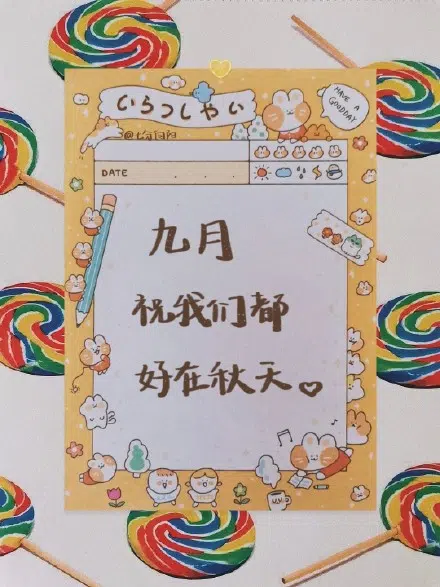 いらっしゃい
HAVE A
GOODDAY
DATE
九月
祝我们都
好在秋天